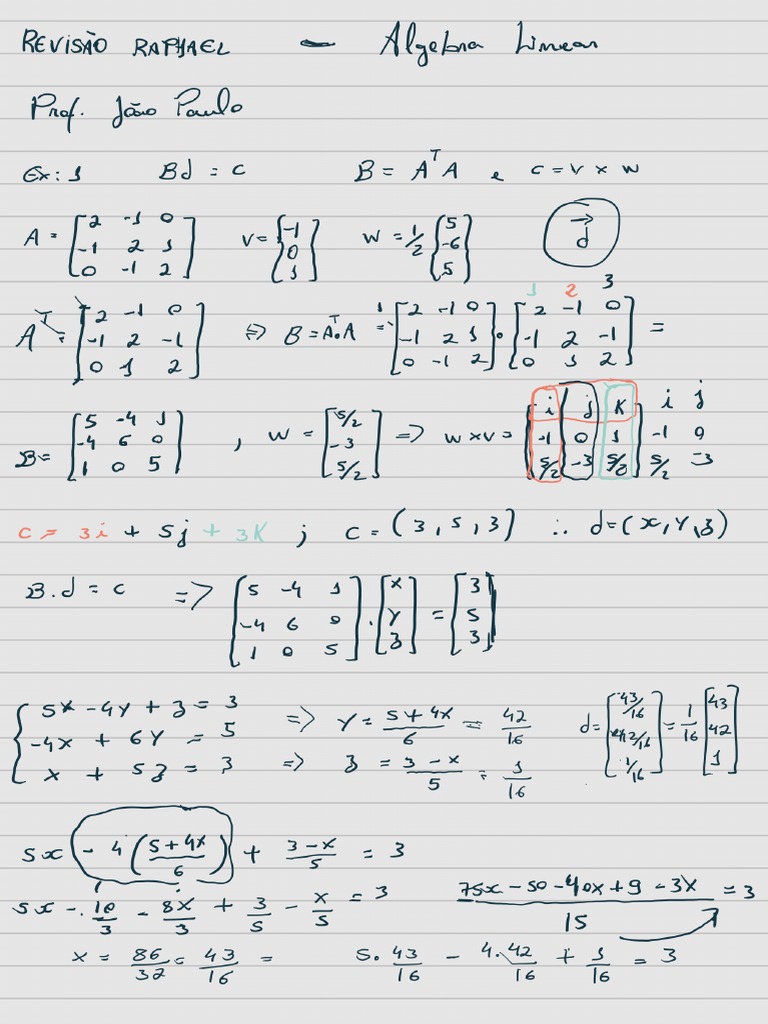 REVISÃO RAPHAEL — Algebra Linear
Prof. João Paulo
Ex: 1 Bd = c B = A^T A e c = v × w
A = [2 -1 0; -1 2 1; 0 -1 2] v = [-1; 0; 1] w = 1/2 [5; -6; 5] d→
1 2 3
A^T = [2 -1 0; -1 2 -1; 0 1 2] => B = A^T.A = [2 -1 0; -1 2 1; 0 -1 2] . [2 -1 0; -1 2 -1; 0 1 2] =
B = [5 -4 1; -4 6 0; 1 0 5] , w = [5/2; -3; 5/2] => w×v = [i j K; -1 0 1; 5/2 -3 5/2] i j; -1 0; 5/2 -3
c = 3i + 5j + 3K ; c = (3, 5, 3) ∴ d = (x, y, z)
B.d = c => [5 -4 1; -4 6 0; 1 0 5] . [x; y; z] = [3; 5; 3]
5x - 4y + z = 3 => y = (5+4x)/6 = 42/16 d = [43/16; 42/16; 1/16] = 1/16 [43; 42; 1]
-4x + 6y = 5
x + 5z = 3 => z = (3-x)/5 = 1/16
5x - 4((5+4x)/6) + (3-x)/5 = 3
5x - 10/3 - 8x/3 + 3/5 - x/5 = 3 (75x - 50 - 40x + 9 - 3x)/15 = 3
x = 86/32 = 43/16 = 5. 43/16 - 4. 42/16 + 1/16 = 3